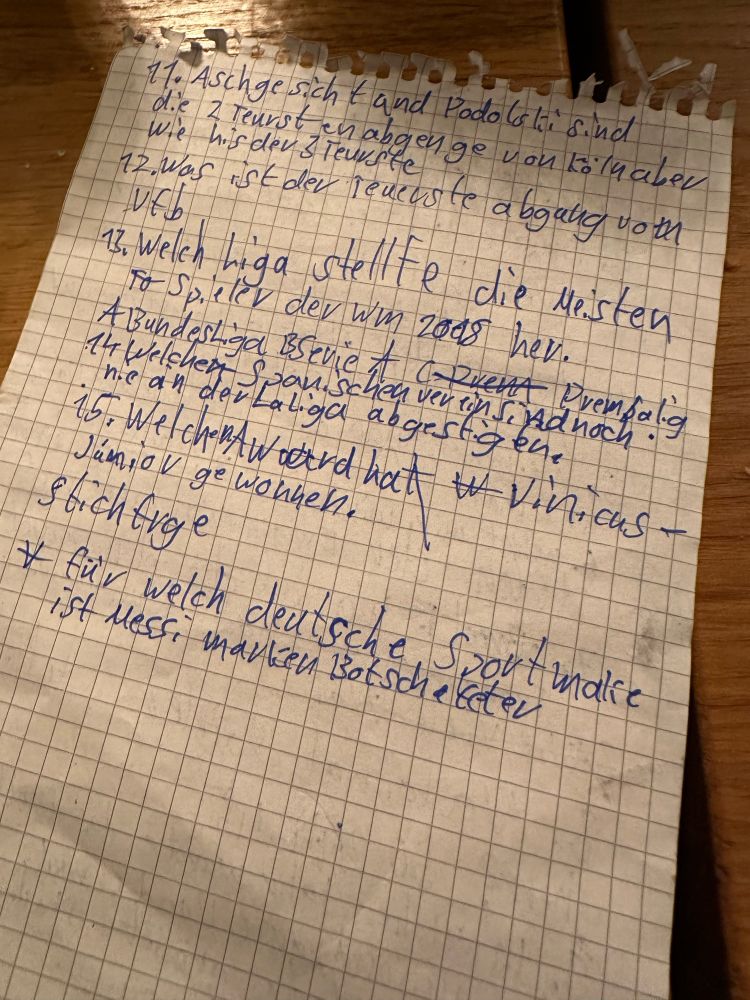 11. Aschgesicht and Podolski sind
die 2 Teursten abgenge von Köln aber
wie his der 3 Teurste
12. Was ist der Teuerste abgang vom
Vfb
13. Welch Liga stellte die Meisten
Spieler der wm 2008 her.
A Bundesliga B Serie A C Premßalig
14 Welchen Spanischen verein sind noch
nie an der Laliga abgestigen.
15. Welchen Award hat Vinicus-
Júnior gewonnen.
Stichfrge
für welch deutsche Sportmake
ist Messi marken Botscheketer